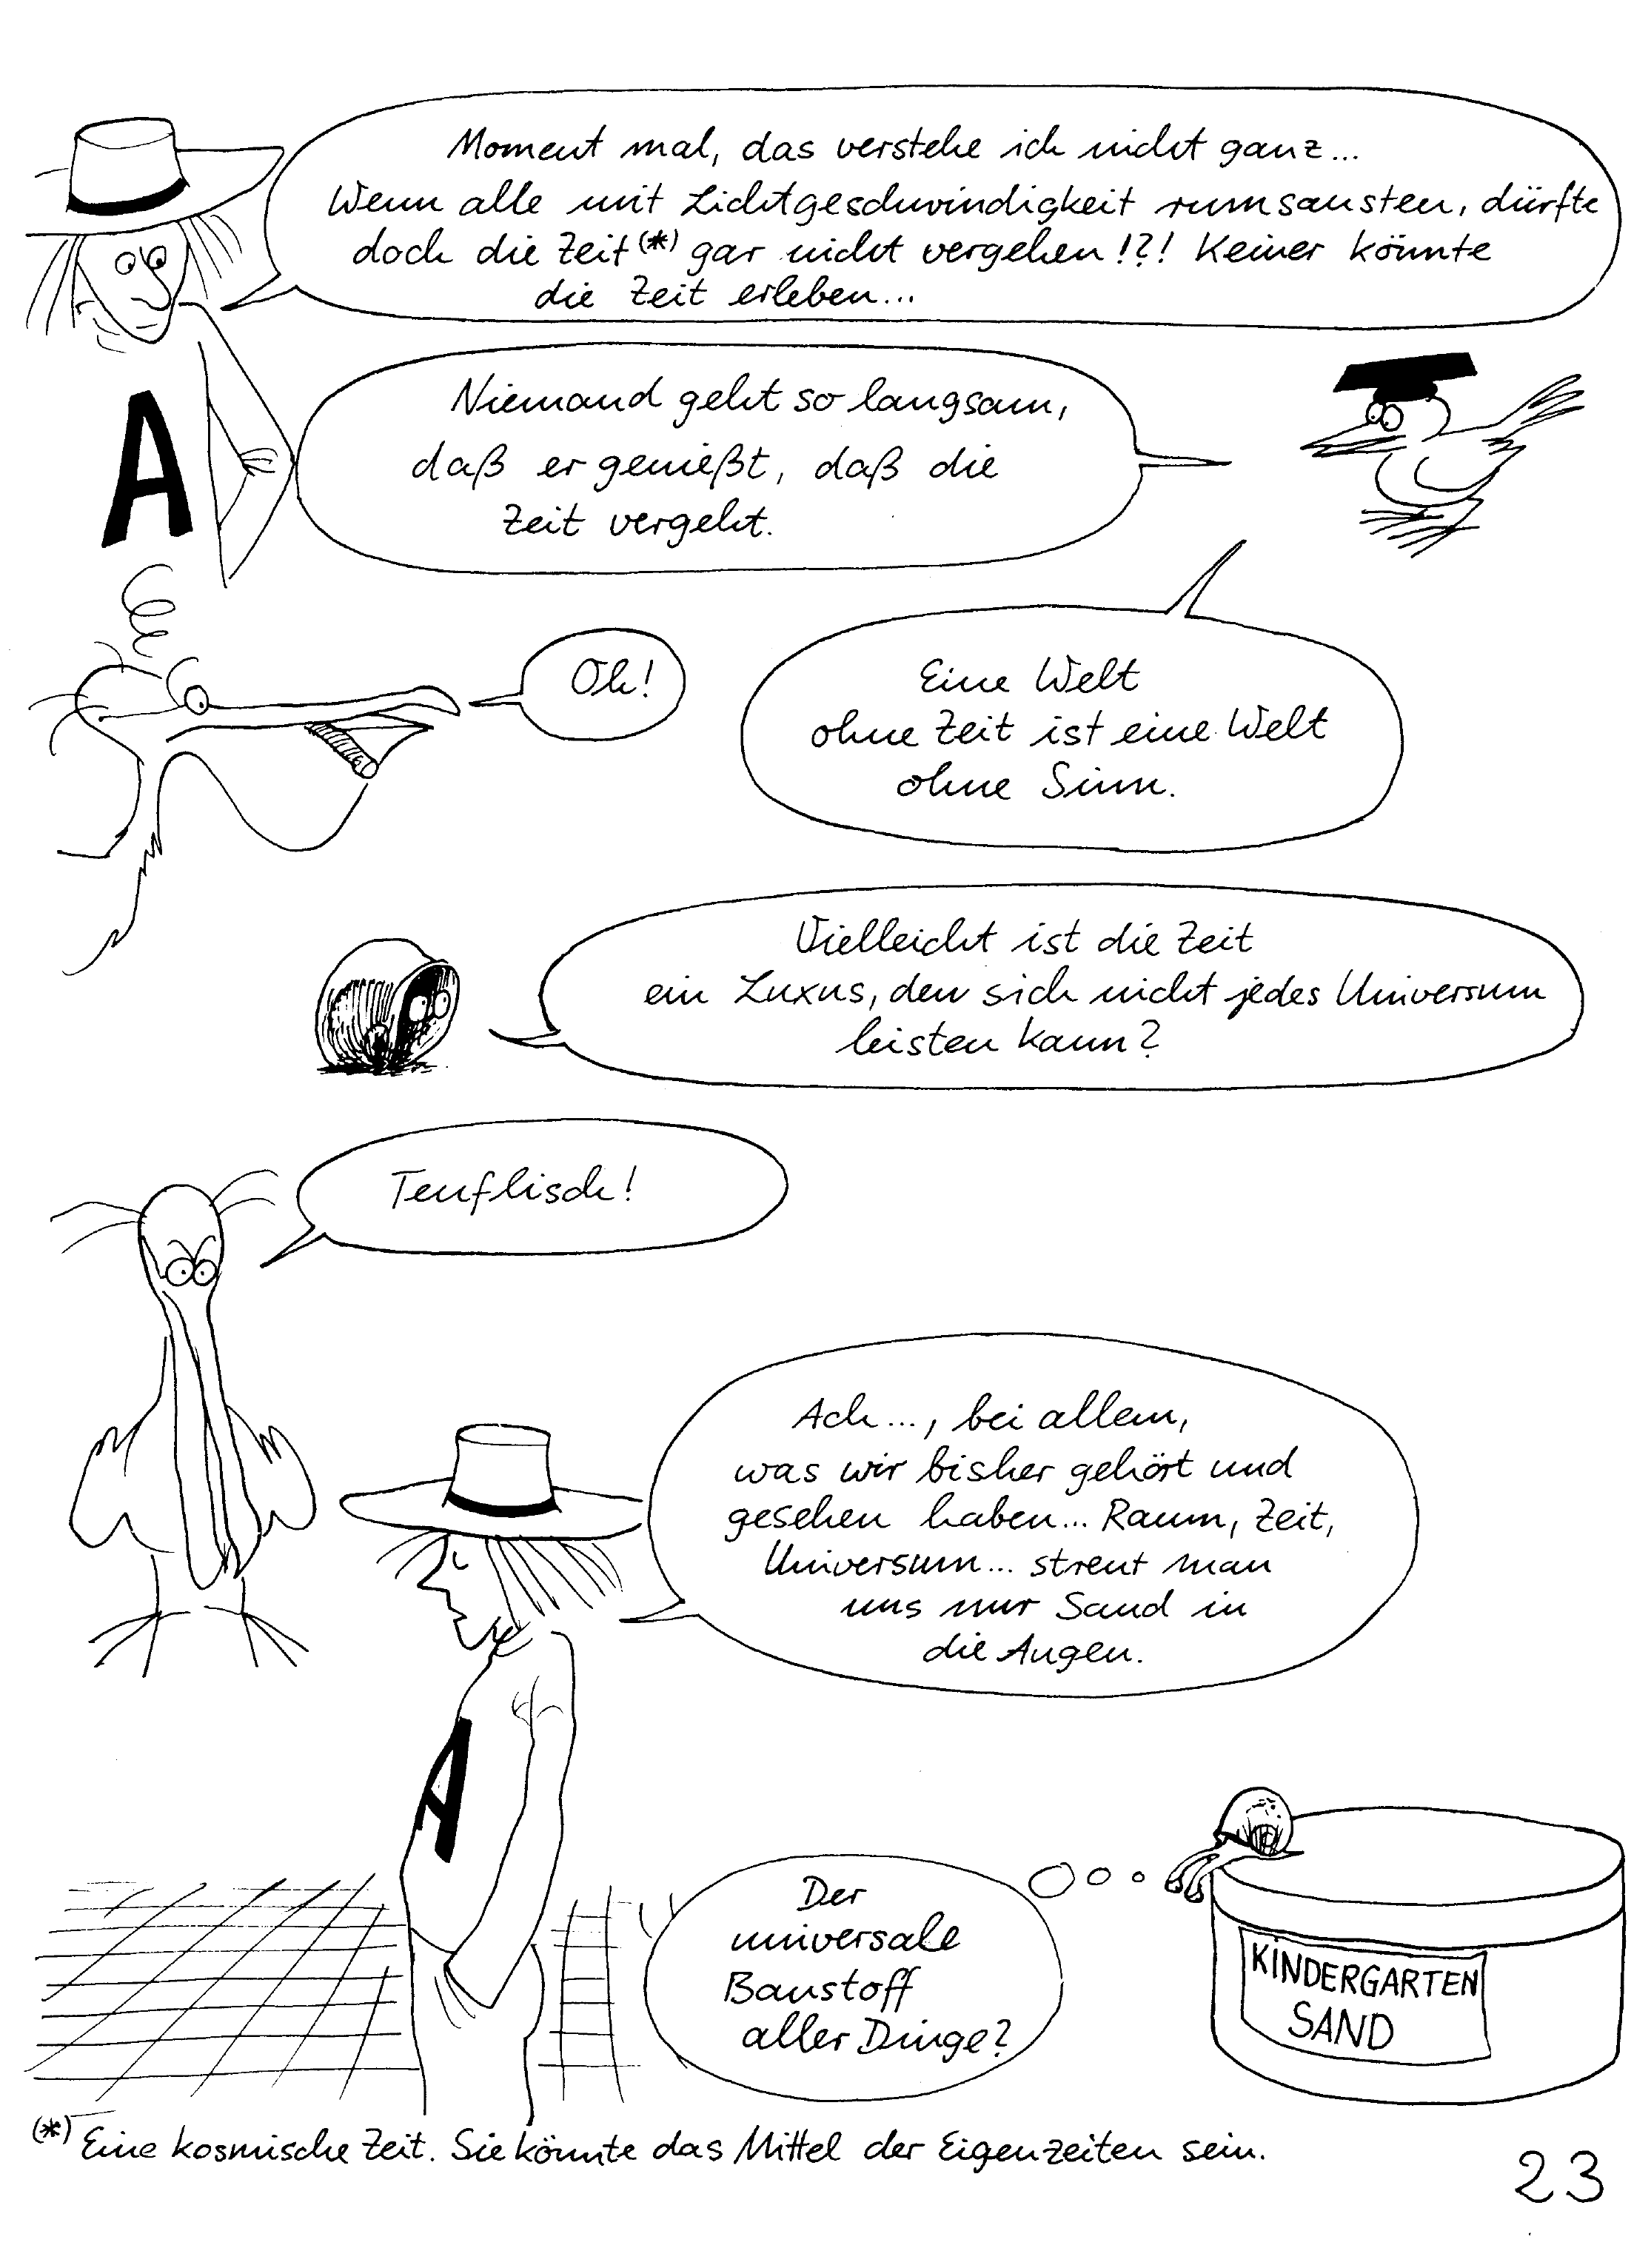 Moment mal, das verstehe ich nicht ganz...
Wenn alle mit Lichtgeschwindigkeit rumsausten, dürfte
doch die Zeit(*) gar nicht vergehen!?! Keiner könnte
die Zeit erleben...
A
Niemand geht so langsam,
daß er genießt, daß die
Zeit vergeht.
Oh!
Eine Welt
ohne Zeit ist eine Welt
ohne Sinn.
Vielleicht ist die Zeit
ein Luxus, den sich nicht jedes Universum
leisten kann?
Teuflisch!
Ach..., bei allem,
was wir bisher gehört und
gesehen haben... Raum, Zeit,
Universum... streut man
uns nur Sand in
die Augen.
A
Der
universale
Baustoff
aller Dinge?
KINDERGARTEN
SAND
(*) Eine kosmische Zeit. Sie könnte das Mittel der Eigenzeiten sein.
23